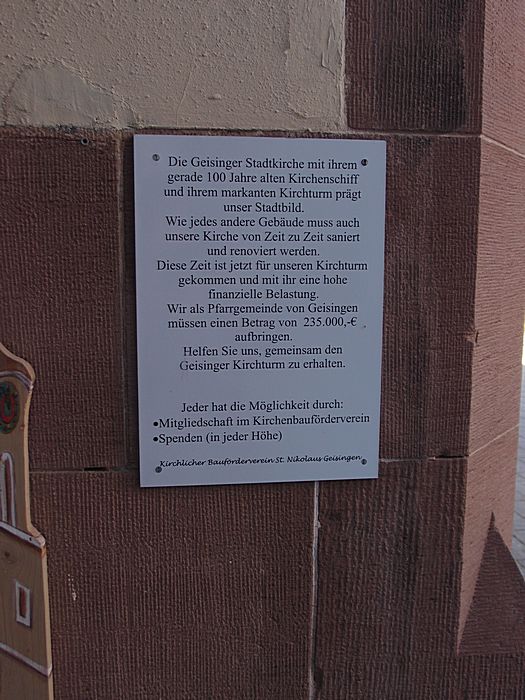 Die Geisinger Stadtkirche mit ihrem
gerade 100 Jahre alten Kirchenschiff
und ihrem markanten Kirchturm prägt
unser Stadtbild.
Wie jedes andere Gebäude muss auch
unsere Kirche von Zeit zu Zeit saniert
und renoviert werden.
Diese Zeit ist jetzt für unseren Kirchturm
gekommen und mit ihr eine hohe
finanzielle Belastung.
Wir als Pfarrgemeinde von Geisingen
müssen einen Betrag von 235.000,-€
aufbringen.
Helfen Sie uns, gemeinsam den
Geisinger Kirchturm zu erhalten.
Jeder hat die Möglichkeit durch:
•Mitgliedschaft im Kirchenbauförderverein
•Spenden (in jeder Höhe)
Kirchlicher Bauförderverein St. Nikolaus Geisingen